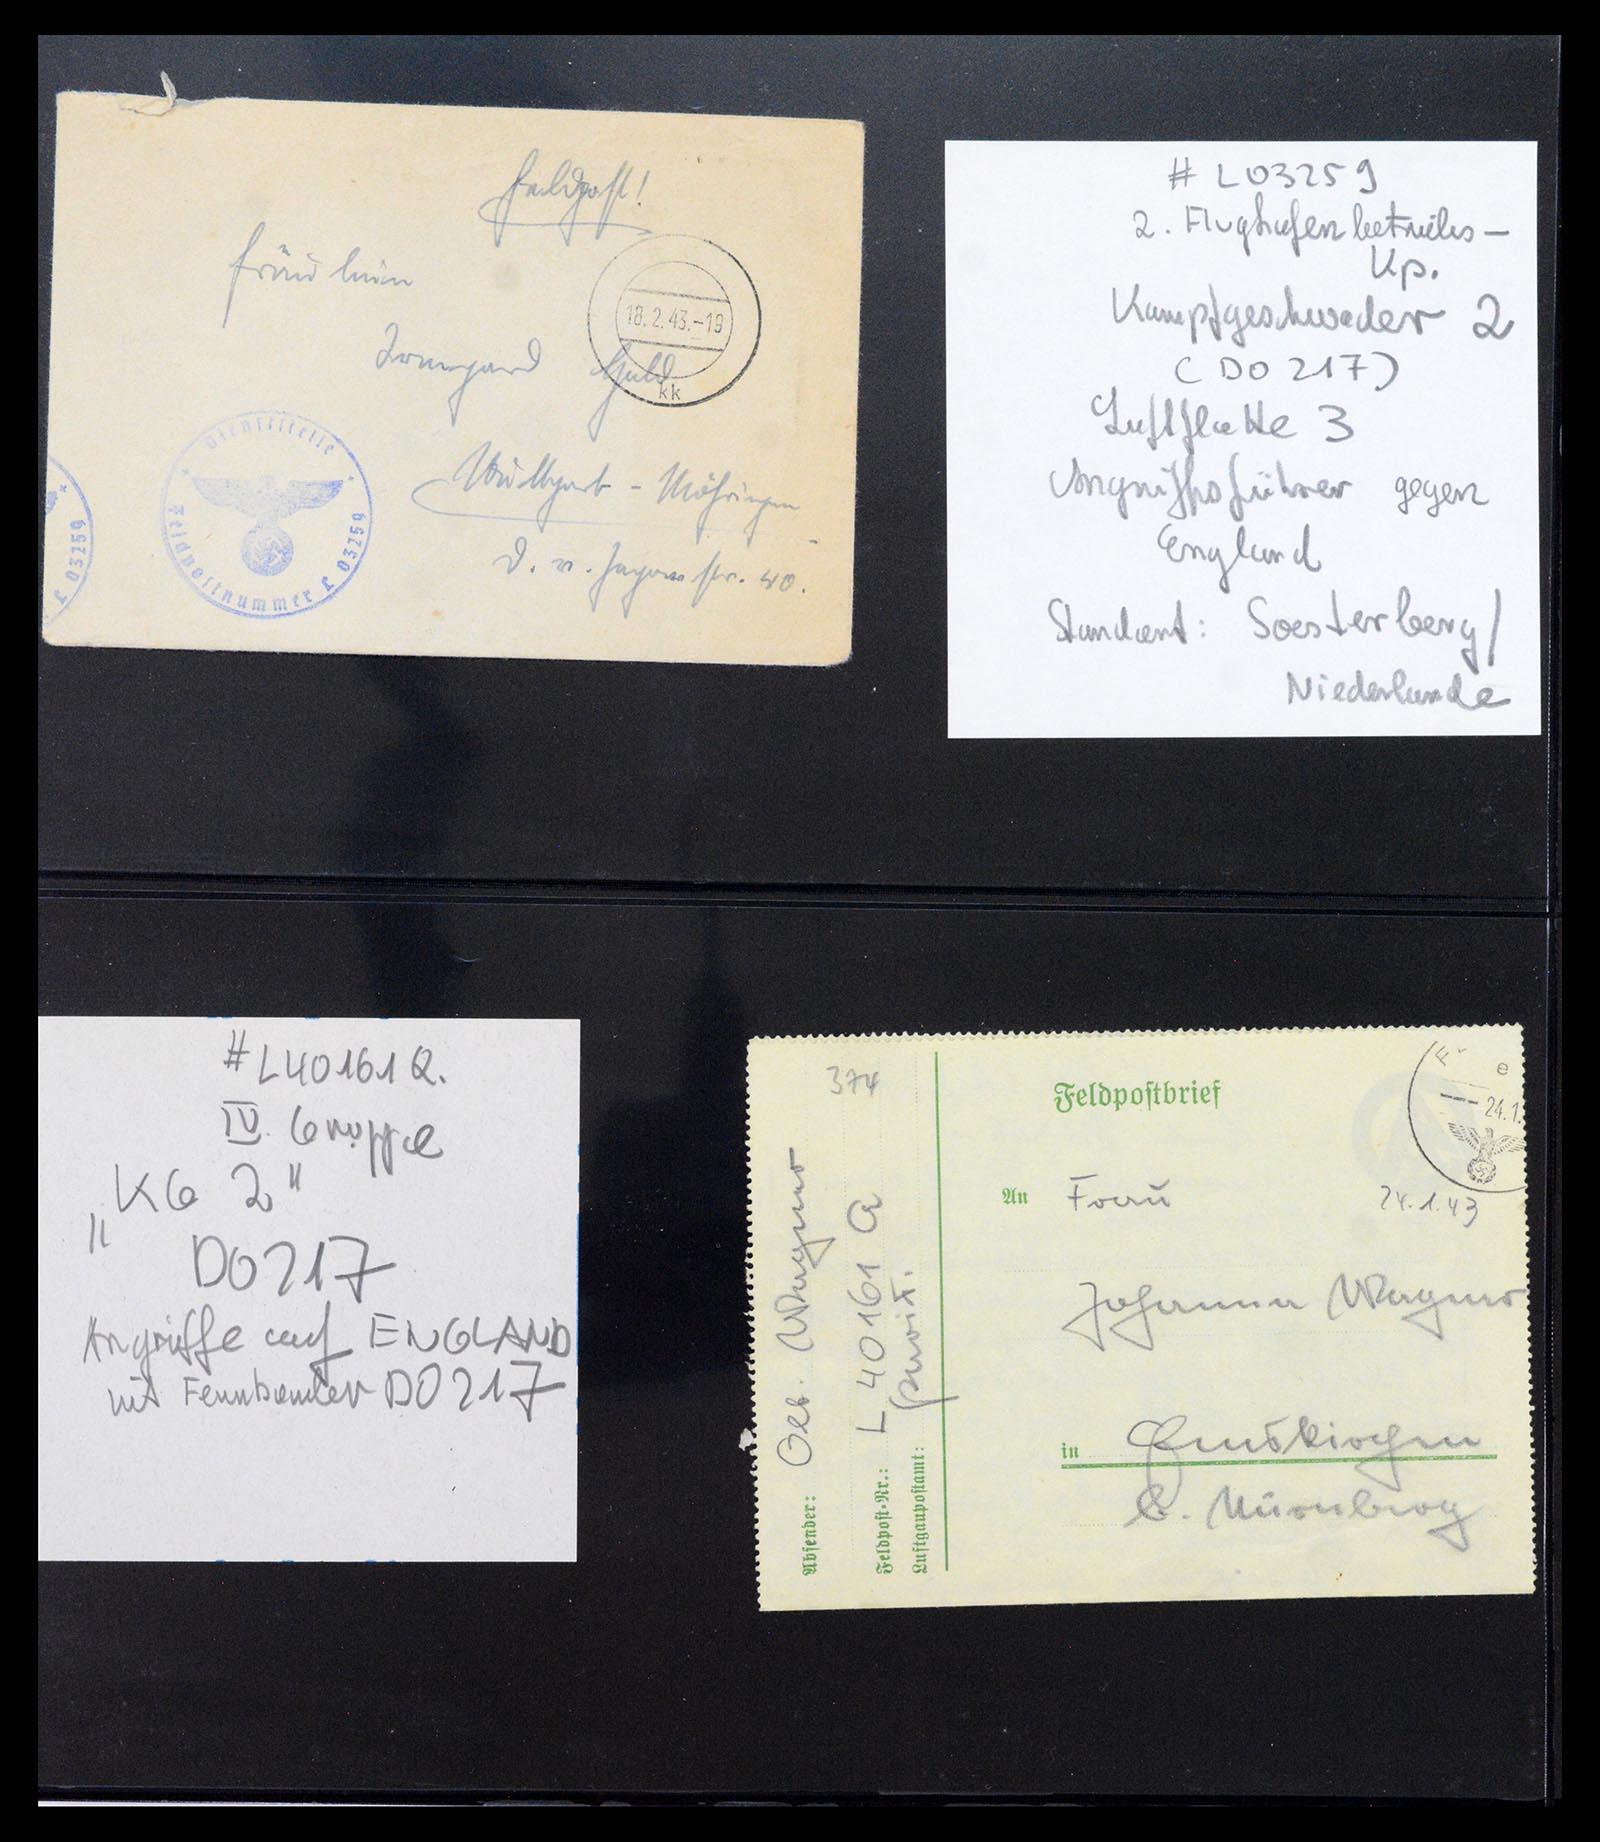 Feldpost!
Fräulein
18.2.43.-19
Irmgard Guld
kk
Dienststelle
Feldpostnummer L 03259
L 03259
Stuttgart - Möhringen
D. v. Jagow str. 40.
# L03259
2. Flughafenbetriebs-
Kp.
Kampfgeschwader 2
(DO 217)
Luftflotte 3
Angriffsführer gegen
England
Standort: Soesterberg/
Niederlande
#L40161Q.
IV. Gruppe
„KG 2"
DO217
Angriffe auf ENGLAND
mit DO217
374
Feldpostbrief
24.1.
An Frau
24.1.43
Johanna Wagner
in Emskirchen
b. Nürnberg
Absender: Wagner
Feldpost-Nr.: L 40161 Q
Luftgaupostamt: